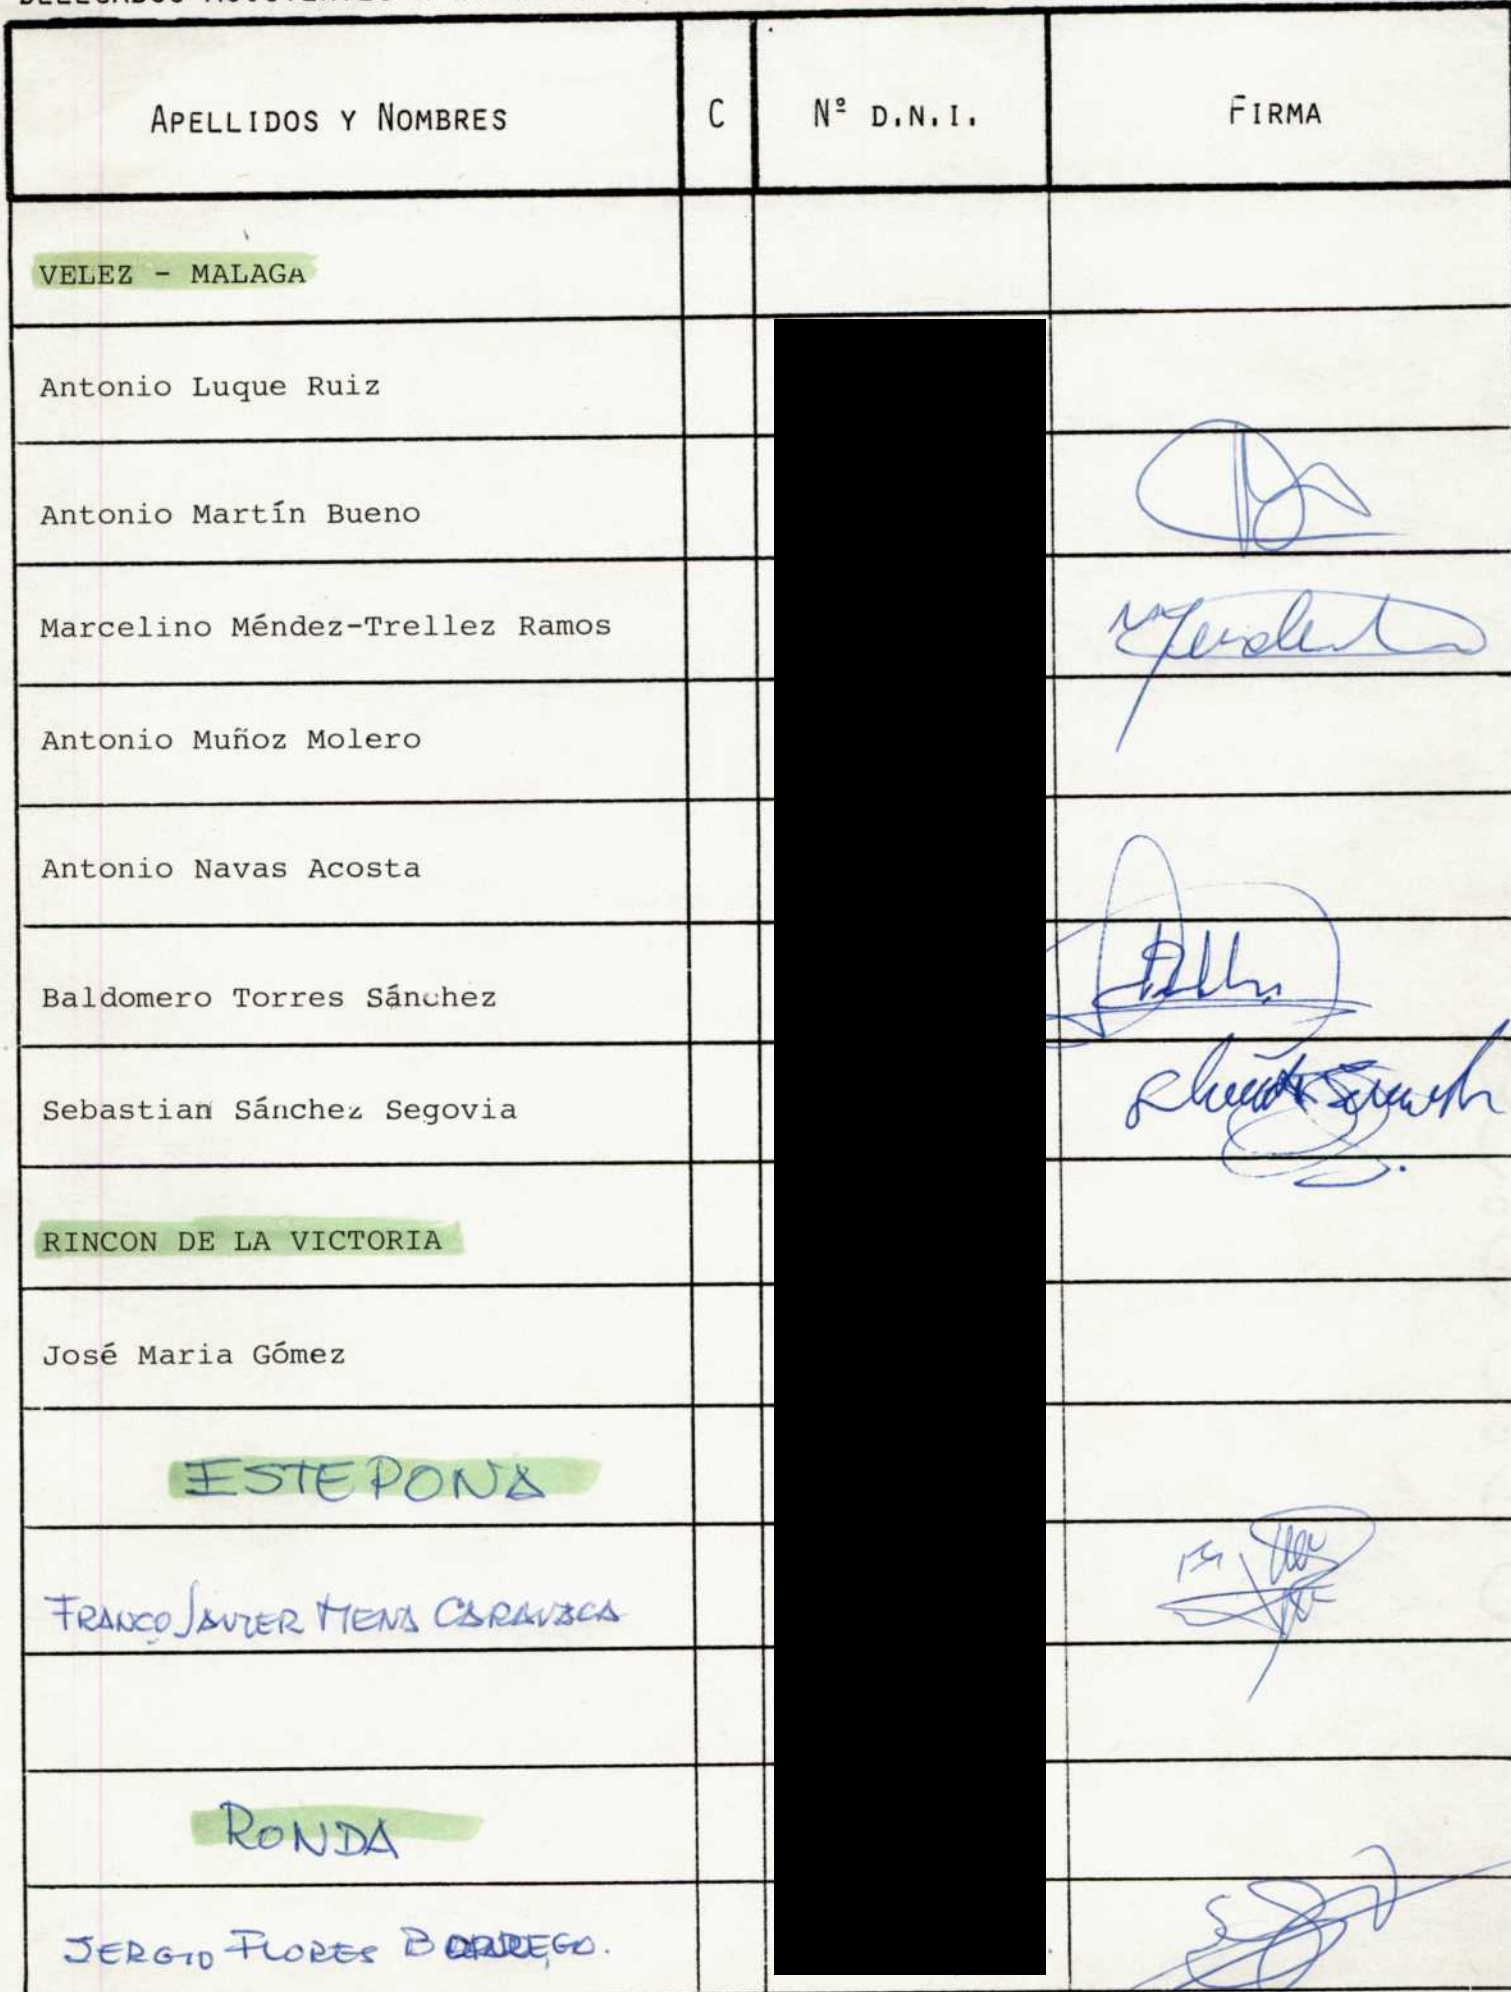 APELLIDOS Y NOMBRES C Nº D.N.I. FIRMA
VELEZ - MALAGA
Antonio Luque Ruiz
Antonio Martín Bueno
Marcelino Méndez-Trellez Ramos
Antonio Muñoz Molero
Antonio Navas Acosta
Baldomero Torres Sánchez
Sebastian Sánchez Segovia
RINCON DE LA VICTORIA
José Maria Gómez
ESTEPONA
FRANCO JAVIER MENA CARAVACA
RONDA
SERGIO FLORES BORREGO.